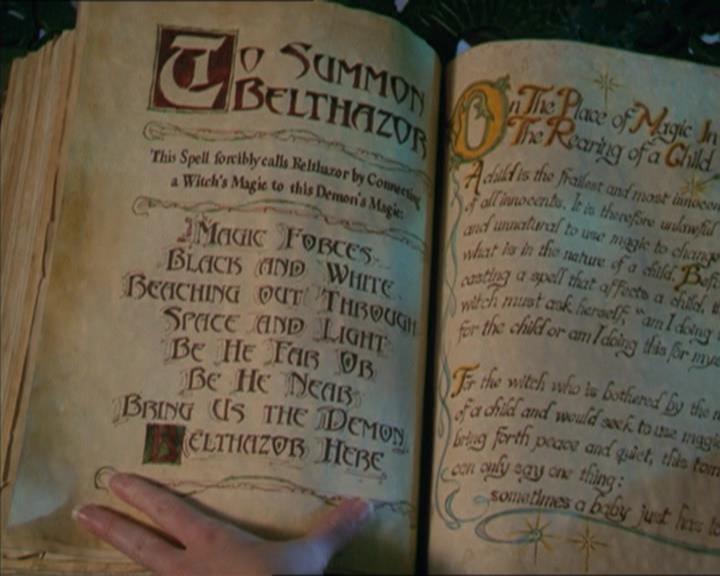 To Summon
Belthazor
This Spell forcibly calls Belthazor by Connecting
a Witch's Magic to this Demon's Magic:
Magic Forces
Black and White
Reaching out Through
Space and Light
Be He Far Or
Be He Near
Bring Us the Demon
Belthazor Here
On The Place of Magic In
The Rearing of a Child
A child is the frailest and most innocent
of all innocents. It is therefore unlawful
and unnatural to use magic to change
what is in the nature of a child.
casting a spell that affects a child,
witch must ask herself, "am I doing
for the child or am I doing this for
For the witch who is bothered by the
of a child and would seek to use magic
bring forth peace and quiet, this
can only say one thing:
sometimes a baby just has